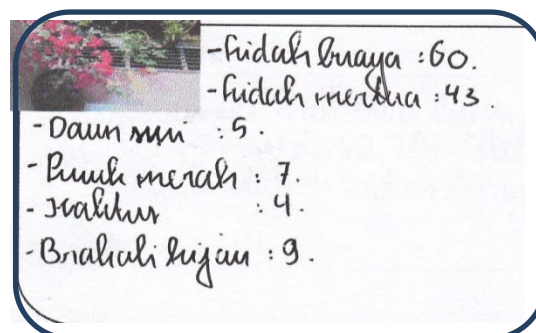 - Lidah buaya : 60.
- Lidah mertua : 43.
- Daun : 5.
- Pucuk merah : 7.
- Kaktus : 4.
- Brakali hijau : 9.